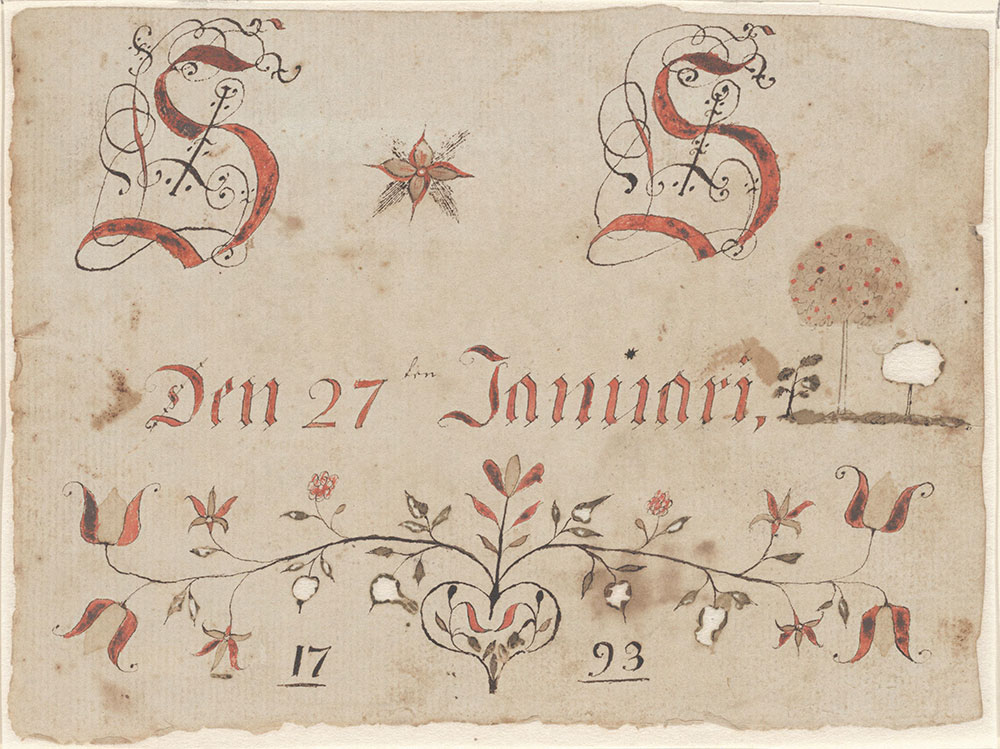 S S
Den 27ten Januari,
17 93